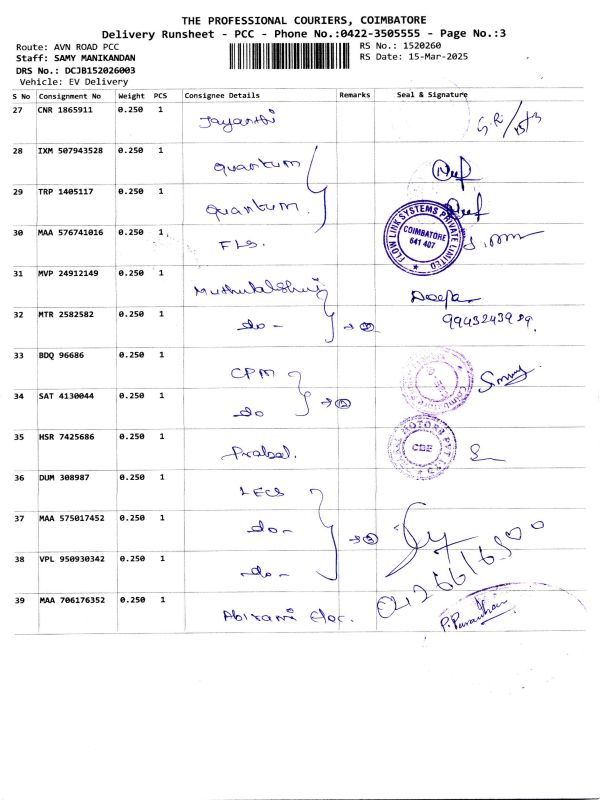 THE PROFESSIONAL COURIERS, COIMBATORE
Delivery Runsheet - PCC - Phone No.:0422-3505555 - Page No.:3
Route: AVN ROAD PCC RS No.: 1520260
Staff: SAMY MANIKANDAN RS Date: 15-Mar-2025
DRS No.: DCJB152026003
Vehicle: EV Delivery
S No Consignment No Weight PCS Consignee Details Remarks Seal & Signature
27 CNR 1865911 0.250 1 Jayanthi
28 IXM 507943528 0.250 1 quantum
29 TRP 1405117 0.250 1 quantum.
30 MAA 576741016 0.250 1 FLS. FLOW LINK SYSTEMS PRIVATE LIMITED COIMBATORE 641 407
31 MVP 24912149 0.250 1 Deepa
32 MTR 2582582 0.250 1 do -
33 BDQ 96686 0.250 1 CPM
34 SAT 4130044 0.250 1 do
35 HSR 7425686 0.250 1 CBE
36 DUM 308987 0.250 1 LECS
37 MAA 575017452 0.250 1 do - 3
38 VPL 950930342 0.250 1 do -
39 MAA 706176352 0.250 1 Abirami Elec.